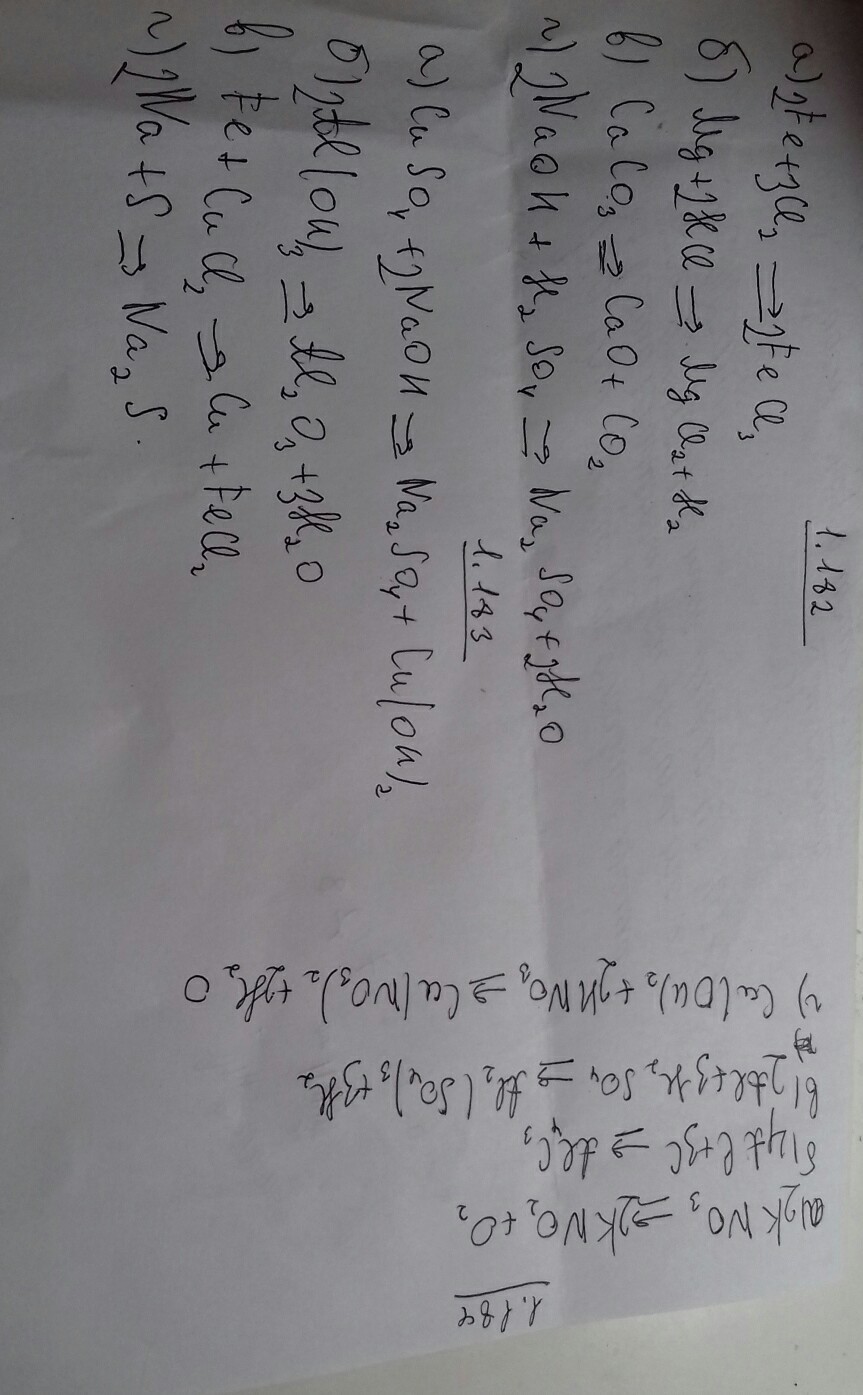 1.182
а) 2Fe+3Cl₂ ⇒ 2FeCl₃
б) Mg+2HCl ⇒ MgCl₂+H₂
в) CaCO₃ ⇒ CaO+CO₂
г) 2NaOH + H₂SO₄ ⇒ Na₂SO₄+2H₂O
1.183
а) CuSO₄+2NaOH ⇒ Na₂SO₄+Cu(OH)₂
б) 2Al(OH)₃ ⇒ Al₂O₃+3H₂O
в) Fe+CuCl₂ ⇒ Cu+FeCl₂
г) 2Na+S ⇒ Na₂S.
1.184
а) 2KNO₃ ⇒ 2KNO₂+O₂
б) 4Al+3C ⇒ Al₄C₃
в) 2Al+3H₂SO₄ ⇒ Al₂(SO₄)₃+3H₂
г) Cu(OH)₂+2HNO₃ ⇒ Cu(NO₃)₂+2H₂O